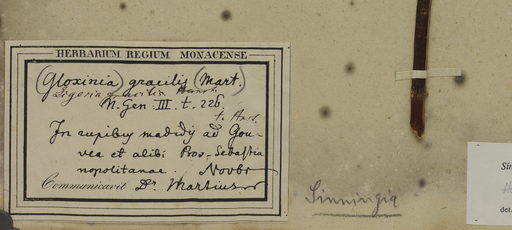 HERBARIUM REGIUM MONACENSE
(Gloxinia) gracilis (Mart.)
Ligeria gracilis Hanst.
N. Gen. III. t. 226
In rupibus madidis ad Gou-
vea et alibi Prov. Sebastia
nopolitanae. Novbr
Communicavit Dr. Martius
Sinningia
Sin
det.